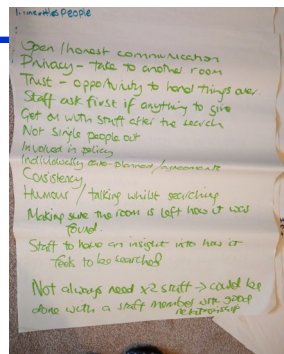 People
Open/honest communication
Privacy - take to another room
Trust - opportunity to hand things over
Staff ask first if anything to give
Get on with stuff after the search
Not single people out
Involved in policy
Individually care-planned/agreements
Consistency
Humour / talking whilst searching
Making sure the room is left how it was
found
Staff to have an insight into how it
feels to be searched
Not always need x2 staff → could be
done with a staff member with good
relationship